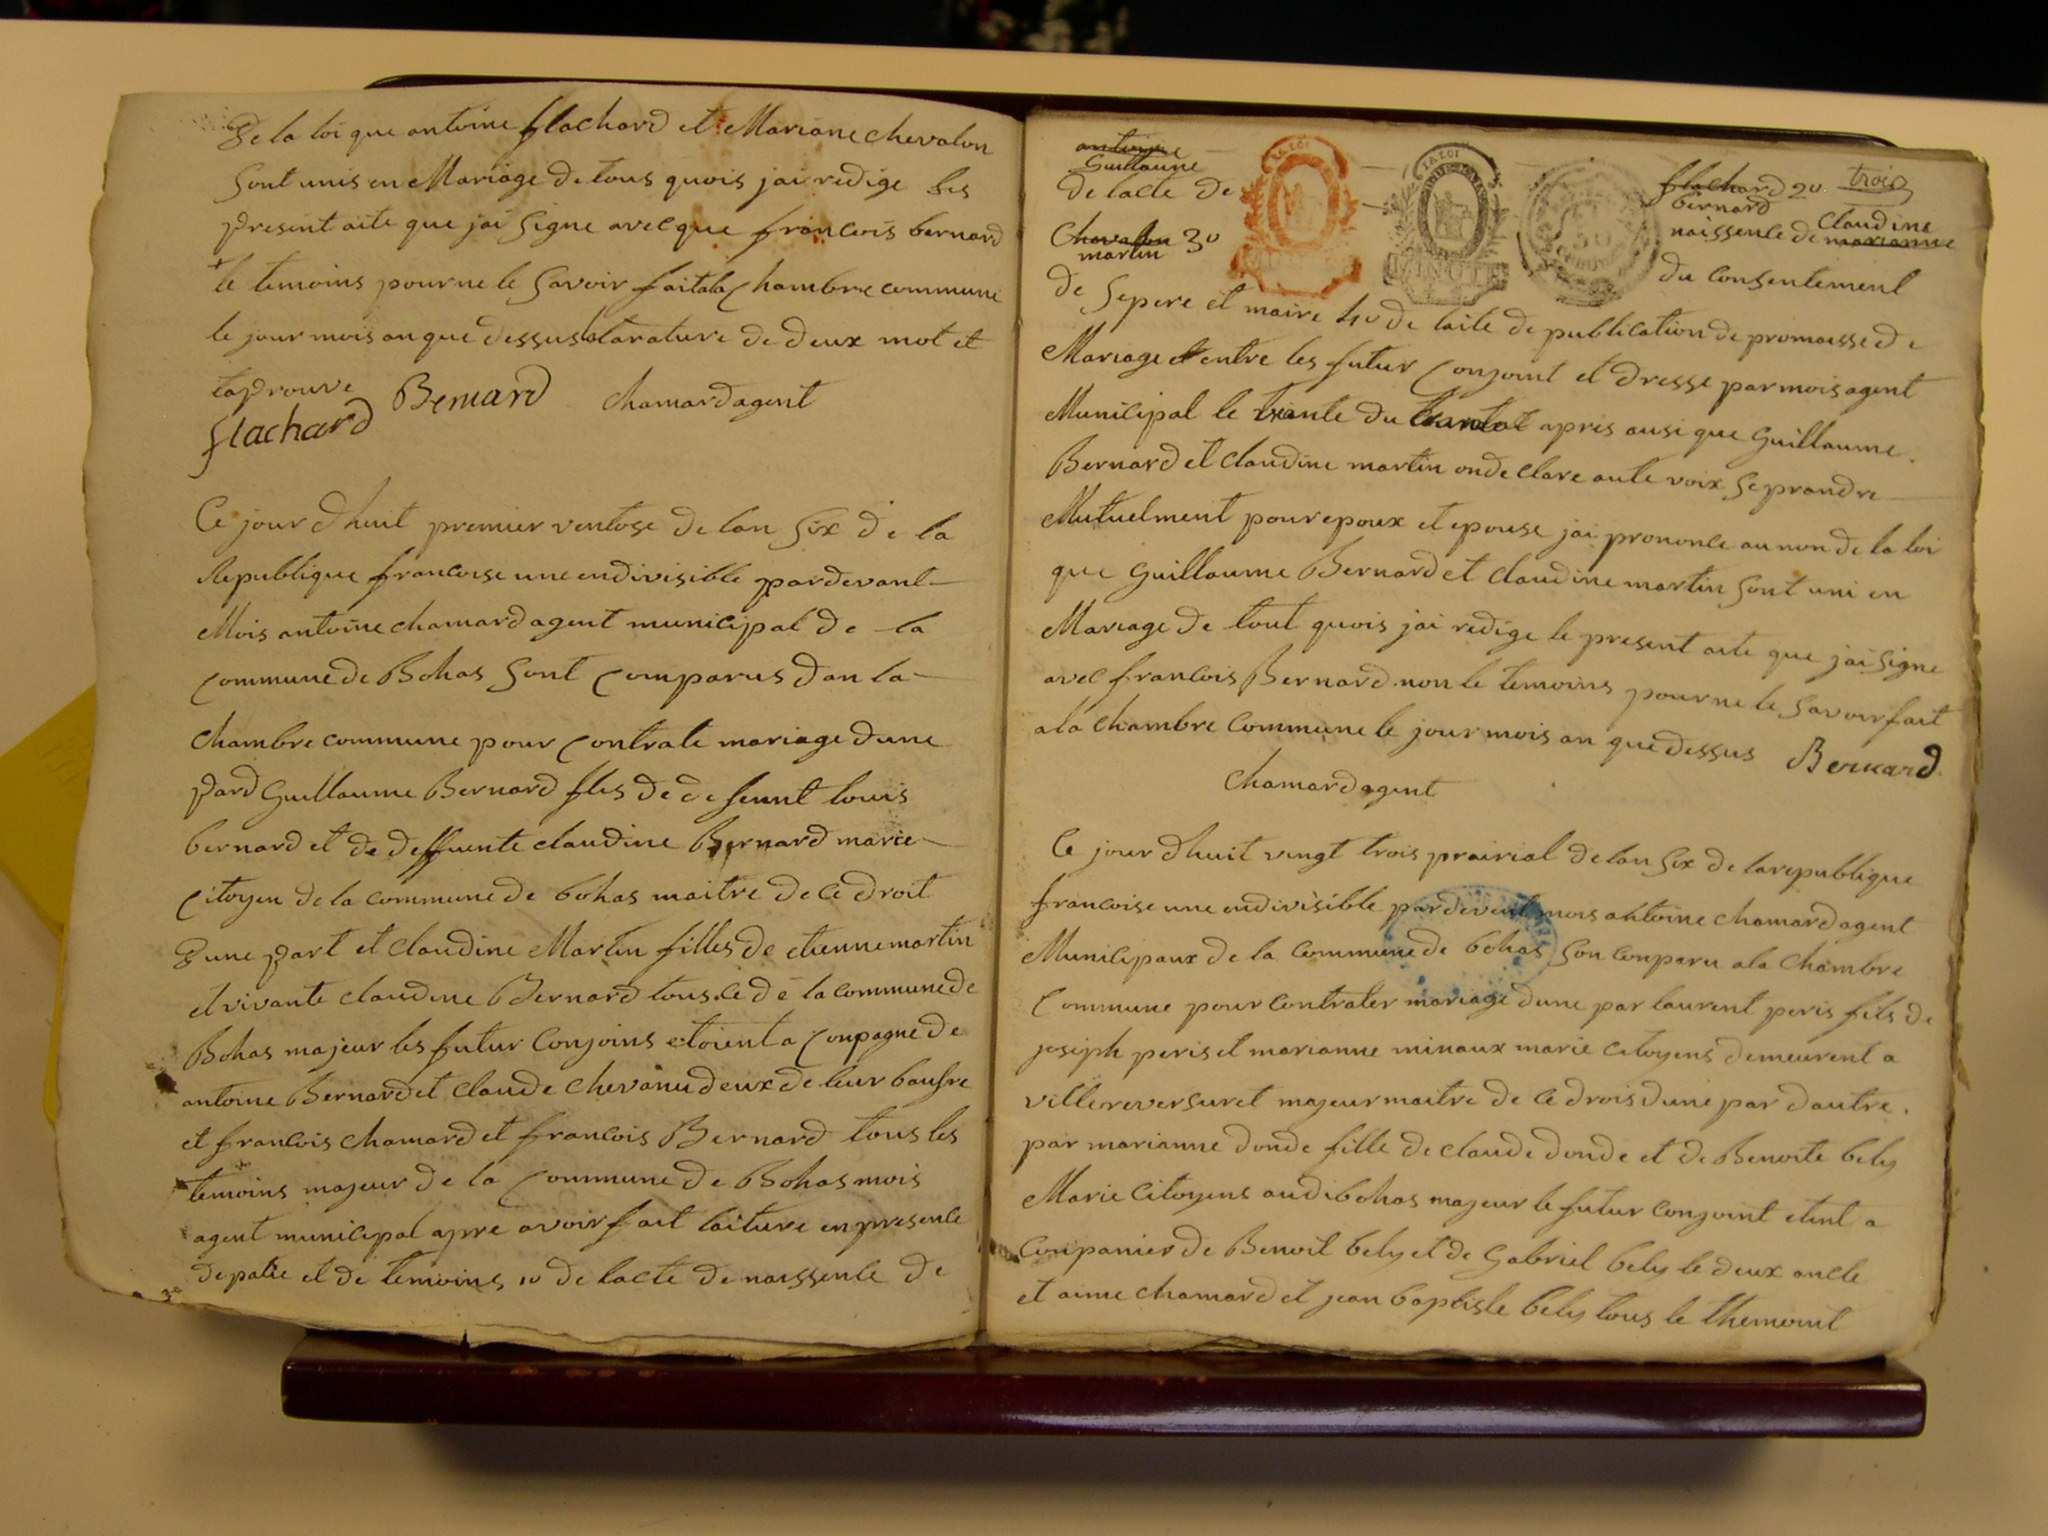 De la loi que antoine flachard et Mariane chevalon
sont unis en Mariage de tous quois jai redige les
present aite que jai signe avecque francois bernard
le temoins pour ne le savoir fait ala chambre commune
le jour mois an que dessus la rature de deux mot et
taprouve
flachard Bernard chamard agent
Ce jour dhuit premier ventose de lan six de la
Republique francoise une endivisible pardevant
Mois antoine chamard agent municipal de la
commune de Bohas sont comparus dan la
chambre commune pour contrate mariage dune
pard Guillaume Bernard fles de defeunt louis
bernard et de deffuente claudine Bernard marie
citoyen de la commune de bohas maitre de ce droit
dune part et claudine Martin filles de etienne martin
et vivante claudine Bernard tous ce de la commune de
Bohas majeur les futur conjoins etoient a conpagne de
antoine Bernard et claude chevanu deux de leur baufre
et francois chamard et francois Bernard tous les
temoins majeur de la commune de Bohas mois
agent municipal apre avoir fait laiture en presence
de patie et de temoins 1o de lacte de naissence de
antoine
Guillaume
de lacte de
LA LOI
LA LOI
MINUTE
flachard 2o trois
bernard
naissence de claudine
marianne
Chevalon 3o
martin
du consentiment
de sepere et maire 4o de laite de publication de promaisse de
Mariage et entre les futur conjoint et dresse par mois agent
Municipal le trante du apres ausi que Guillaume
Bernard et claudine martin on declare aute voix se prandre
Mutuelment pour epoux et epouse jai prononce au non de la loi
que Guillaume Bernard et claudine martin sont uni en
Mariage de tout quois jai redige le present aite que jai signe
avec francois Bernard non le temoins pour ne le savoir fait
ala chambre commune le jour mois an que dessus Bernard
chamard agent
Ce jour dhuit vingt trois prairial de lan six de la republique
francoise une endivisible pardevent mois antoine chamard agent
Municipaux de la commune de bohas son conparu ala chambre
commune pour contrater mariage dune par laurent peris fils de
joseph peris et marianne minaux marie citoyens demeurent a
villereversuret majeur maitre de ce drois dune par dautre
par marianne donde fille de claude donde et de Benoite bely
Marie citoyens audibohas majeur le futur conjoint etent a
conpanier de Benoit bely et de Gabriel bely le deux oncle
et aime chamard et jean baptiste bely tous le themoint